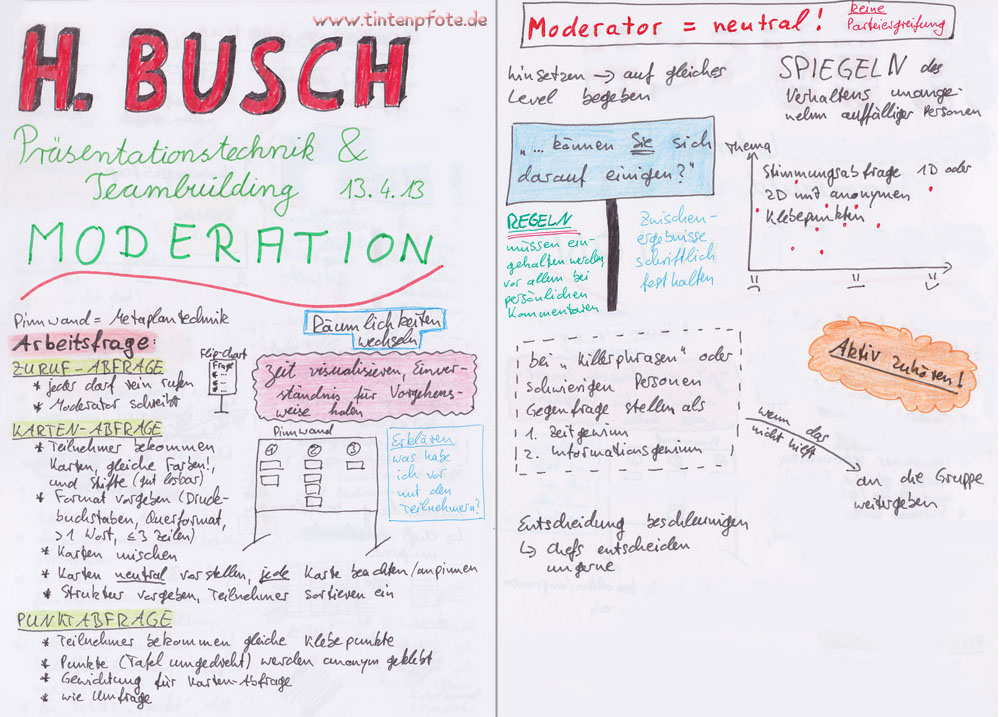 www.tintenpfote.de
H. BUSCH
Präsentationstechnik &
Teambuilding 13.4.13
MODERATION
Pinnwand = Metaplantechnik
Räumlichkeiten
wechseln
Arbeitsfrage:
ZURUF-ABFRAGE
* jeder darf rein rufen
* Moderator schreibt
Flip-Chart
Frage
Zeit visualisieren, Einver-
ständnis für Vorgehens-
weise holen
KARTEN-ABFRAGE
* Teilnehmer bekommen
Karten, gleiche Farben!,
und Stifte (gut lesbar)
* Format vorgeben (Druck-
buchstaben, Querformat,
>1 Wort, ≤3 Zeilen)
* Karten mischen
* Karten neutral vorstellen, jede Karte beachten/anpinnen
* Struktur vorgeben, Teilnehmer sortieren ein
Pinnwand
1 2 3
Erklären
was habe
ich vor
mit den
Teilnehmern?
PUNKTABFRAGE
* Teilnehmer bekommen gleiche Klebepunkte
* Punkte (Tafel umgedreht) werden anonym geklebt
* Gewichtung für Karten-Abfrage
* wie Umfrage
Moderator = neutral!
keine
Parteiergreifung
hinsetzen → auf gleiches
Level begeben
SPIEGELN des
Verhaltens unange-
nehm auffälliger Personen
"... können Sie sich
darauf einigen?"
Thema
Stimmungsabfrage 1D oder
2D mit anonymen
Klebepunkten
REGELN
müssen ein-
gehalten werden,
vor allem bei
persönlichen
Kommentaren
Zwischen-
ergebnisse
schriftlich
festhalten
bei "Killerphrasen" oder
schwierigen Personen
Gegenfrage stellen als
1. Zeitgewinn
2. Informationsgewinn
Aktiv zuhören!
wenn das
nicht hilft
an die Gruppe
weitergeben
Entscheidung beschleunigen
↳ Chefs entscheiden
ungerne